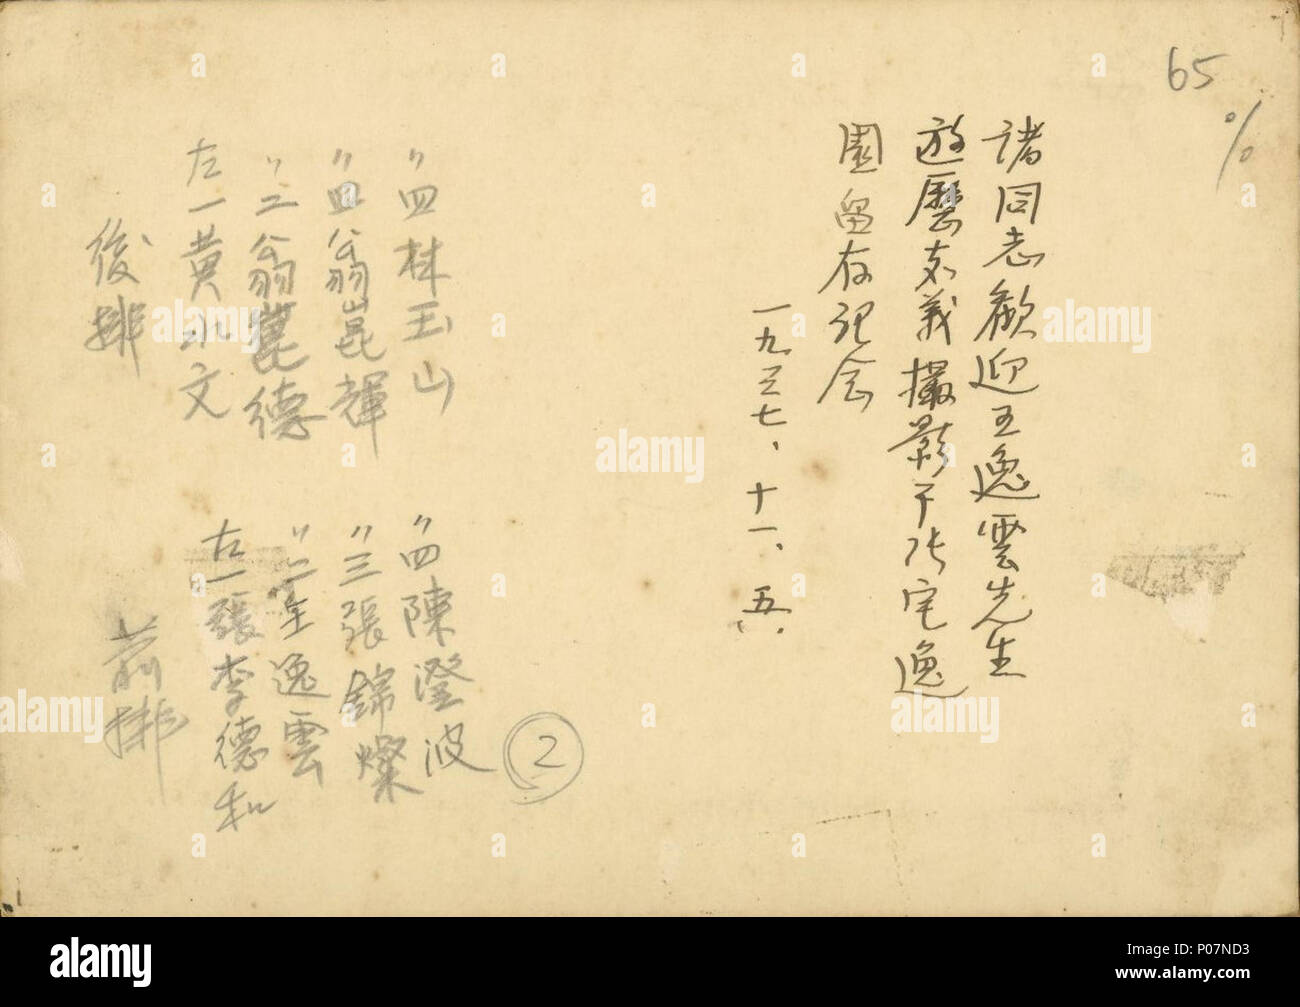 65
%
諸同志歡迎王逸雲先生
遊歷嘉義攝影于張宅逸
園留存記念
一九三七、十一、五、
〃四林玉山
〃四翁崑輝
〃二翁崑德
左一黃水文
後排
〃四陳澄波
〃三張錦燦
〃二王逸雲
左一張李德和
前排
2
alamy
alamy stock photo
Image ID: P07ND3
www.alamy.com